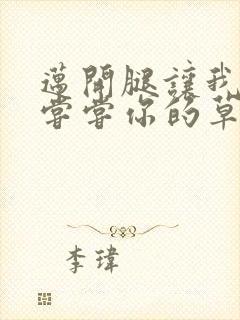 邁開腿讓我
嘗嘗你的草
李瑋